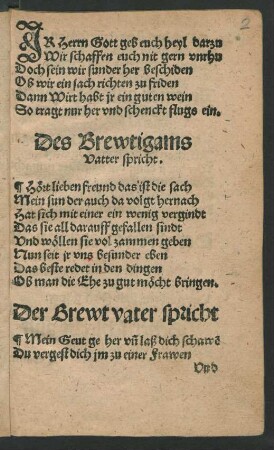 2
IR Herrn Gott geb euch heyl darzu
Wir schaffen euch nit gern vnrhu
Doch sein wir sunder her beschiden
Ob wir ein sach richten zu friden
Dann Wirt habt jr ein guten wein
So tragt nur her vnd schenckt flugs ein.
Des Brewtigams
Vatter spricht.
¶ Hört lieben freund das ist die sach
Mein sun der auch da volgt hernach
Hat sich mit einer ein wenig vergindt
Das sie all darauff gefallen sindt
Und wöllen sie vol zammen geben
Nun seit jr vns besunder eben
Das beste redet in den dingen
Ob man die Ehe zu gut möcht bringen.
Der Brewt vater spricht
¶ Mein Geut ge her vñ laß dich schawẽ
Du vergest dich jm zu einer Frawen
Vnd